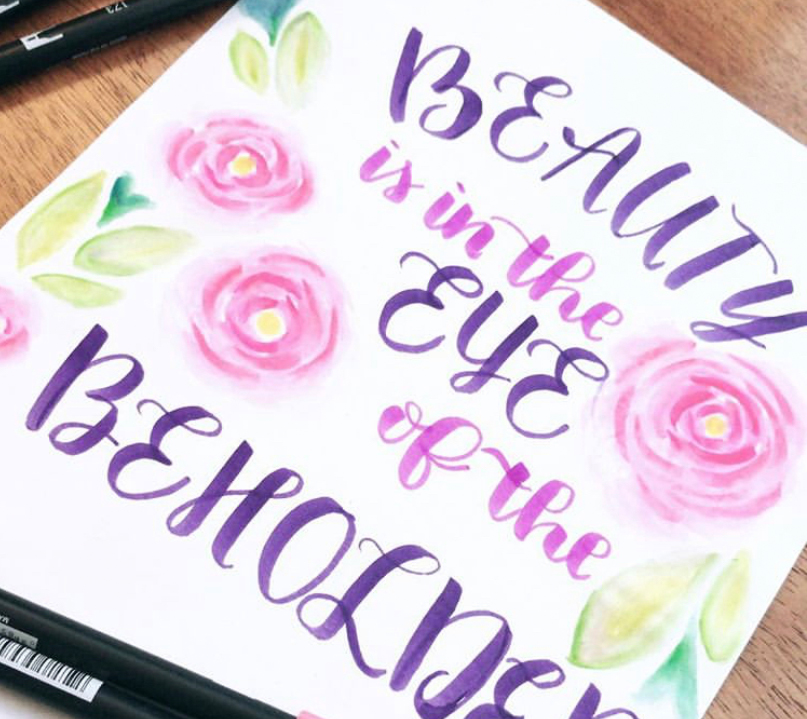 BEAUTY
is in the
EYE
of the
BEHOLDER
173